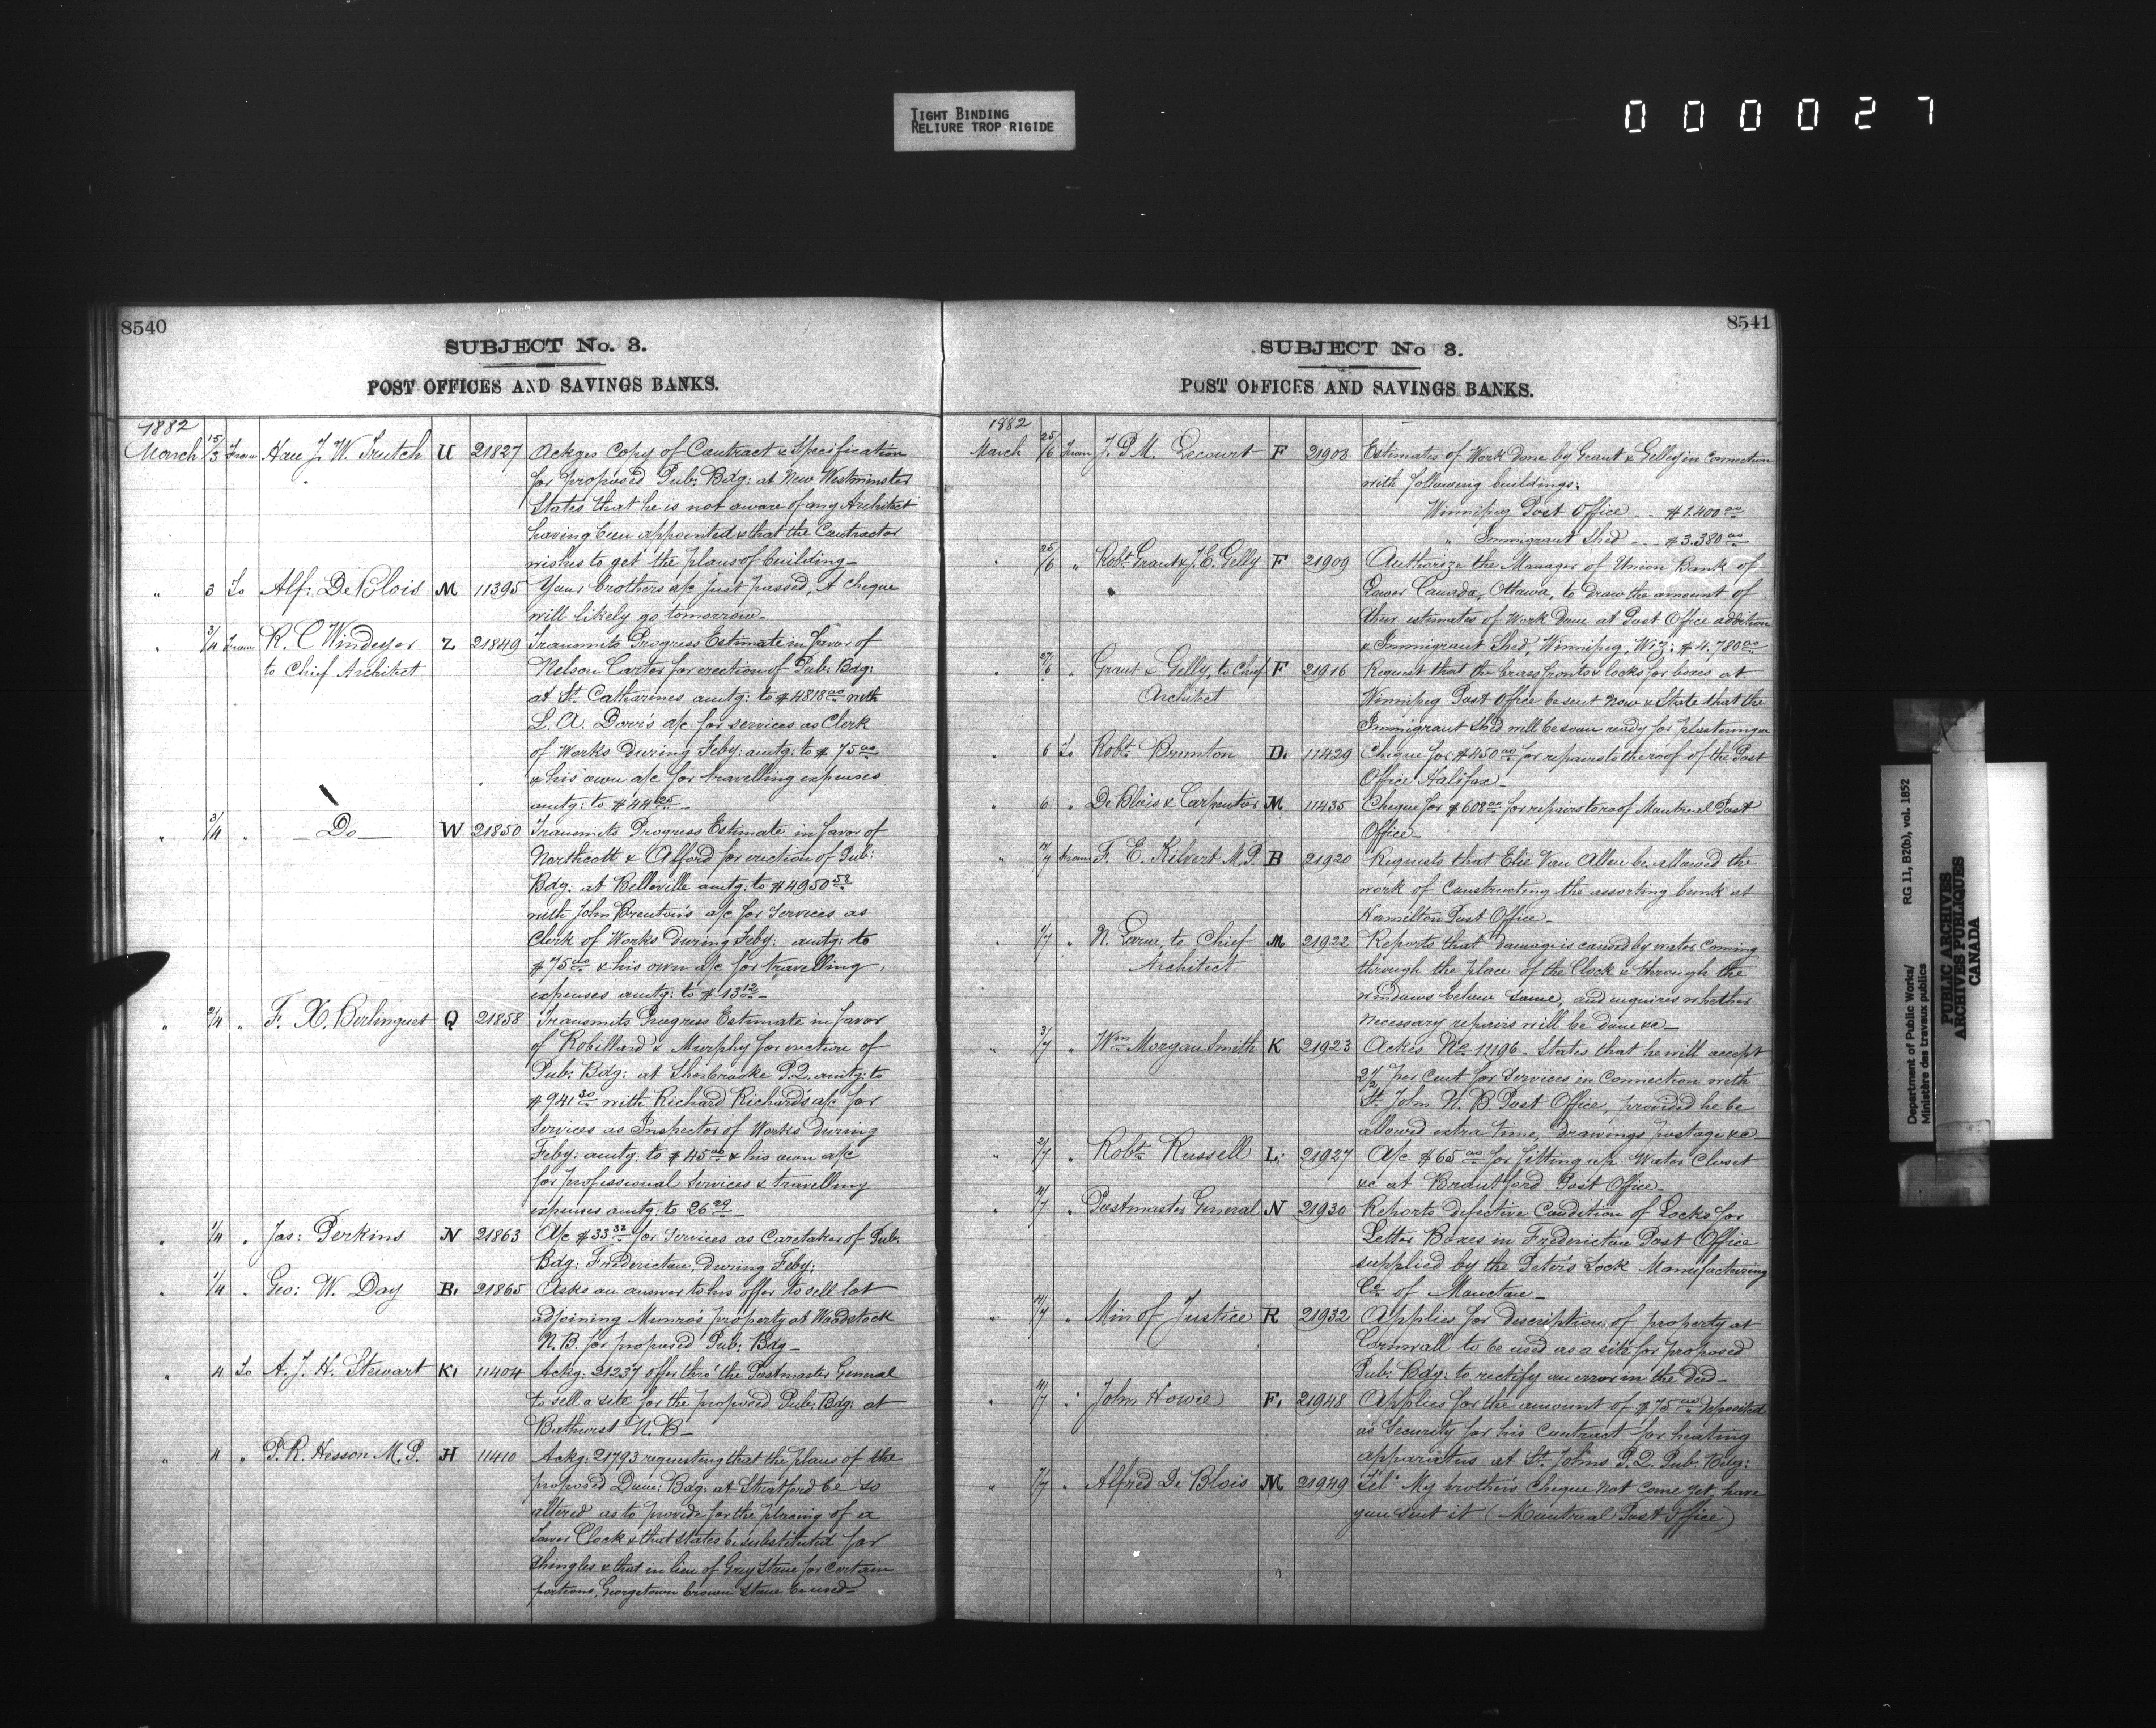 TIGHT BINDING
RELIURE TROP RIGIDE
000027
8540
SUBJECT No. 3.
POST OFFICES AND SAVINGS BANKS.
1882
March 15/3 From Hon J. W. Trutch U 21827 Ackges Copy of Contract & Specification
for proposed Pub: Bdg: at New Westminster
States that he is not aware of any Architect
having been appointed & that the Contractor
wishes to get the plans of building—
" 3 To Alf: De Blois M 11395 Your brothers a/c just passed, A cheque
will likely go tomorrow—
" 3/4 From R. C Windeyer Z 21849 Transmits Progress Estimate in favor of
to Chief Architect Nelson Carter for erection of Pub: Bdg:
at St. Catharines amtg: to $4818.00 with
L. A. Dorr's a/c for services as Clerk
of Works during Feby: amtg: to $75.00
& his own a/c for travelling expenses
amtg: to $44.25—
" 3/4 " —Do— W 21850 Transmits Progress Estimate in favor of
Northcott & Alford for erection of Pub:
Bdg: at Belleville amtg: to $4950.58
with John Brenton's a/c for services as
Clerk of Works during Feby: amtg: to
$75.00 & his own a/c for travelling
expenses amtg: to $13.12—
" 2/4 " F. X. Berlinguet Q 21858 Transmits Progress Estimate in favor
of Robillard & Murphy for erection of
Pub: Bdg: at Sherbrooke P.Q. amtg: to
$941.30 with Richard Richard's a/c for
services as Inspector of Works during
Feby: amtg: to $45.00 & his own a/c
for professional services & travelling
expenses amtg: to 26.29
" 1/4 " Jas: Perkins N 21863 A/c $33.32 for services as Caretaker of Pub:
Bdg: Fredericton, during Feby:
" 1/4 " Geo: W. Day B. 21865 Asks an answer to his offer to sell lot
adjoining Munro's property at Woodstock
N.B. for proposed Pub: Bdg—
" 4 To A. J. H. Stewart K. 11404 Ackg: 21237 offer thro' the Postmaster General
to sell a site for the proposed Pub: Bdg: at
Bathurst N.B—
" 4 " P. R. Hesson M.P. H 11410 Ackg: 21793 requesting that the plans of the
proposed Dom: Bdg: at Stratford be so
altered as to provide for the placing of a
tower Clock & that slates be substituted for
shingles & that in lieu of Grey Stone for certain
portions, Georgetown brown stone be used—
8541
SUBJECT No 3.
POST OFFICES AND SAVINGS BANKS.
1882
March 25/6 From J. P. M. Lecourt F 21908 Estimates of Work done by Grant & Gelley in connection
with following buildings:
Winnipeg Post Office - - $1.400.00
" Immigrant Shed - - $3.380.00
" 25/6 " Robt. Grant & J. E. Gelly F 21909 Authorize the Manager of Union Bank of
Lower Canada, Ottawa, to draw the amount of
their estimates of Work done at Post Office addition
& Immigrant Shed, Winnipeg, Viz: $4.780.00
" 27/6 " Grant & Gelly, to Chief F 21916 Request that the brass fronts & locks for boxes at
Architect Winnipeg Post Office be sent now & State that the
Immigrant Shed will be soon ready for plastering
" 6 To Robt. Brunton D. 11429 Cheque for $450.00 for repairs to the roof of the Post
Office Halifax—
" 6 " De Blois & Carpentier M. 11435 Cheque for $608.00 for repairs to roof Montreal Post
Office—
" From F. E. Kilvert M.P. B 21920 Requests that Elie Van Allen be allowed the
work of constructing the assorting bunk at
Hamilton Post Office—
" 1/7 " N. Larue, to Chief M 21922 Reports that damage is caused by water coming
Architect through the place of the Clock & through the
windows below same, and enquires whether
necessary repairs will be done &c—
" 3/7 " Wm. Morgan Smith K 21923 Ackes No. 11196. States that he will accept
2 1/2 per cent for services in connection with
St. John N.B. Post Office, provided he be
allowed extra time, drawings postage &c—
" 2/7 " Robt. Russell L. 21927 A/c $65.00 for fitting up Water Closet
&c at Brantford Post Office—
" 4/7 " Postmaster General N 21930 Reports defective Condition of Locks for
Letter Boxes in Fredericton Post Office
supplied by the Peters Lock Manufacturing
Co. of Moncton—
" 4/7 " Min of Justice R 21932 Applies for description of property at
Cornwall to be used as a site for proposed
Pub: Bdg: to rectify an error in the deed—
" 4/7 " John Howie F. 21948 Applies for the amount of $75.00 deposited
as Security for his Contract for heating
apparatus at St. Johns P.Q. Pub: Bdg:
" 7/7 " Alfred De Blois M 21949 Tel: My brother's Cheque not come yet, have
you sent it (Montreal Post Office)
Department of Public Works/ RG 11, B2(b), vol. 1852
Ministère des travaux publics
PUBLIC ARCHIVES
ARCHIVES PUBLIQUES
CANADA